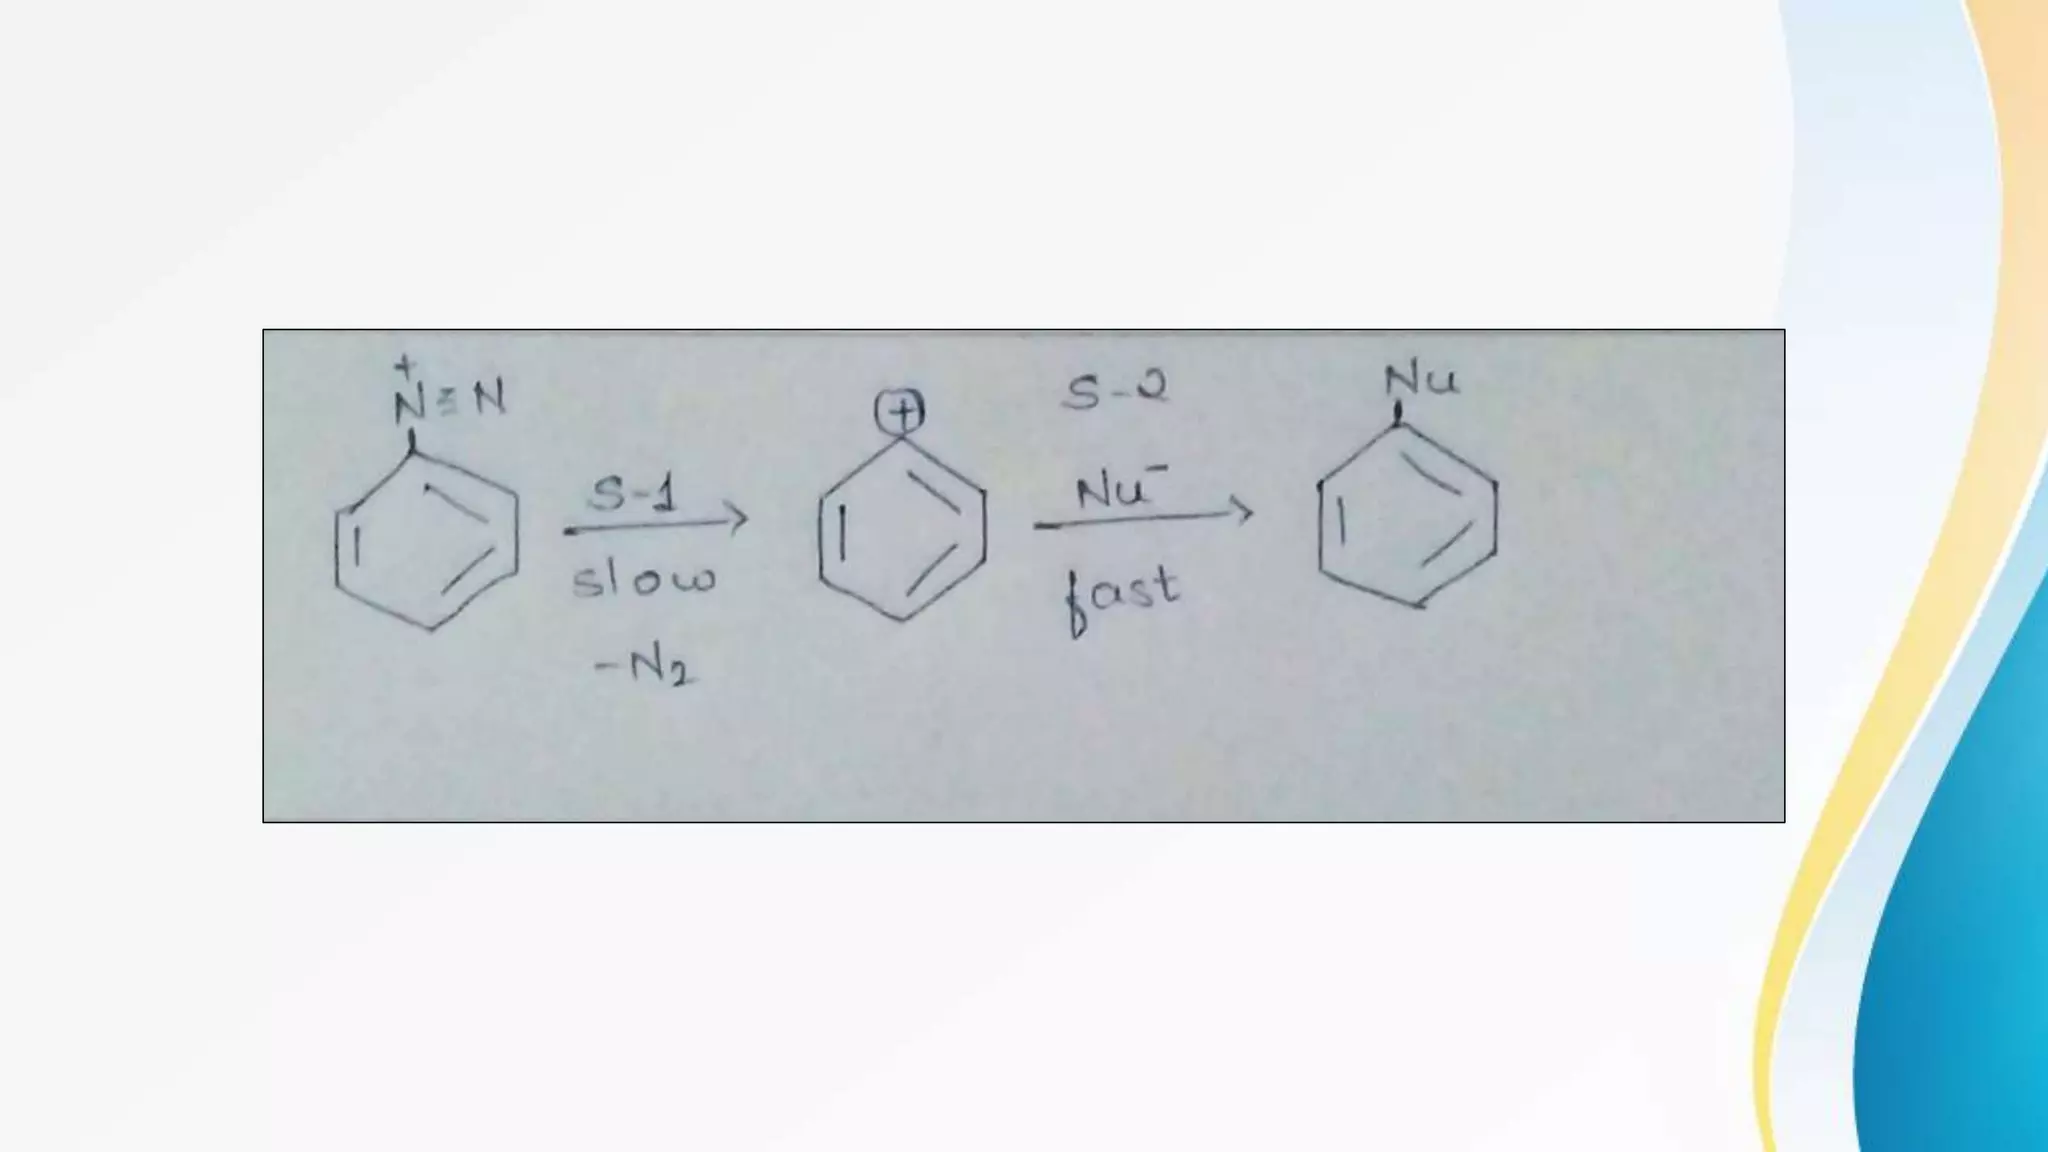 +
N≡N
S-1
slow
-N2
+
S-2
Nu-
fast
Nu